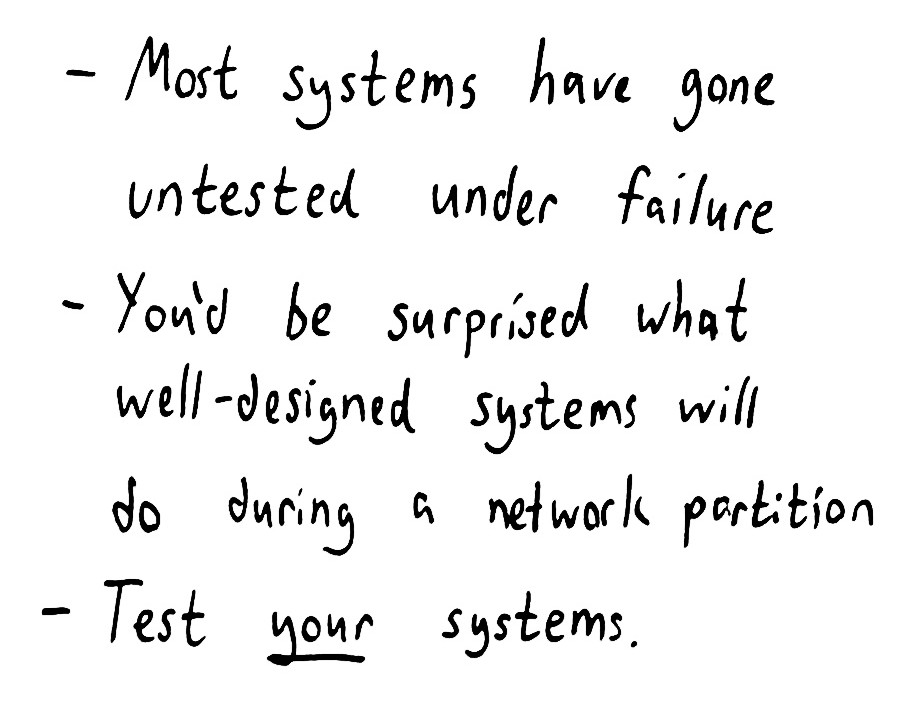 - Most systems have gone
untested under failure
- You'd be surprised what
well-designed systems will
do during a network partition
- Test your systems.